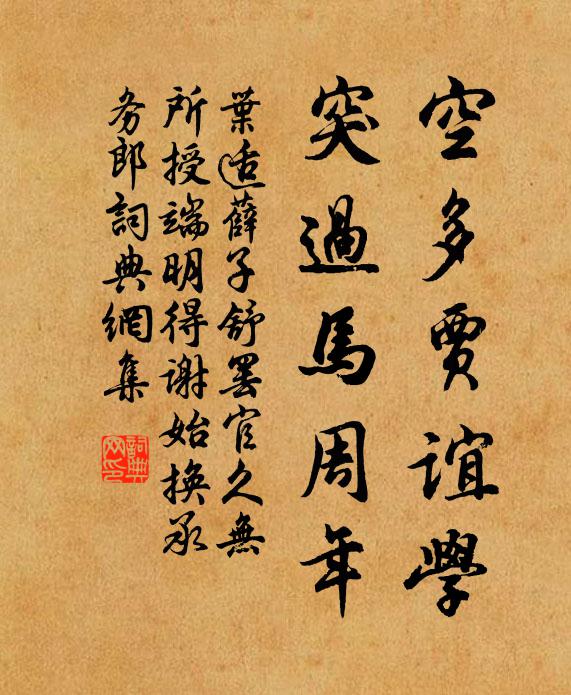 空多賈誼學
突過馬周年
葉适薛子舒罢官久無
所授端明得谢始換承
务郎詞典網集
詞典网印